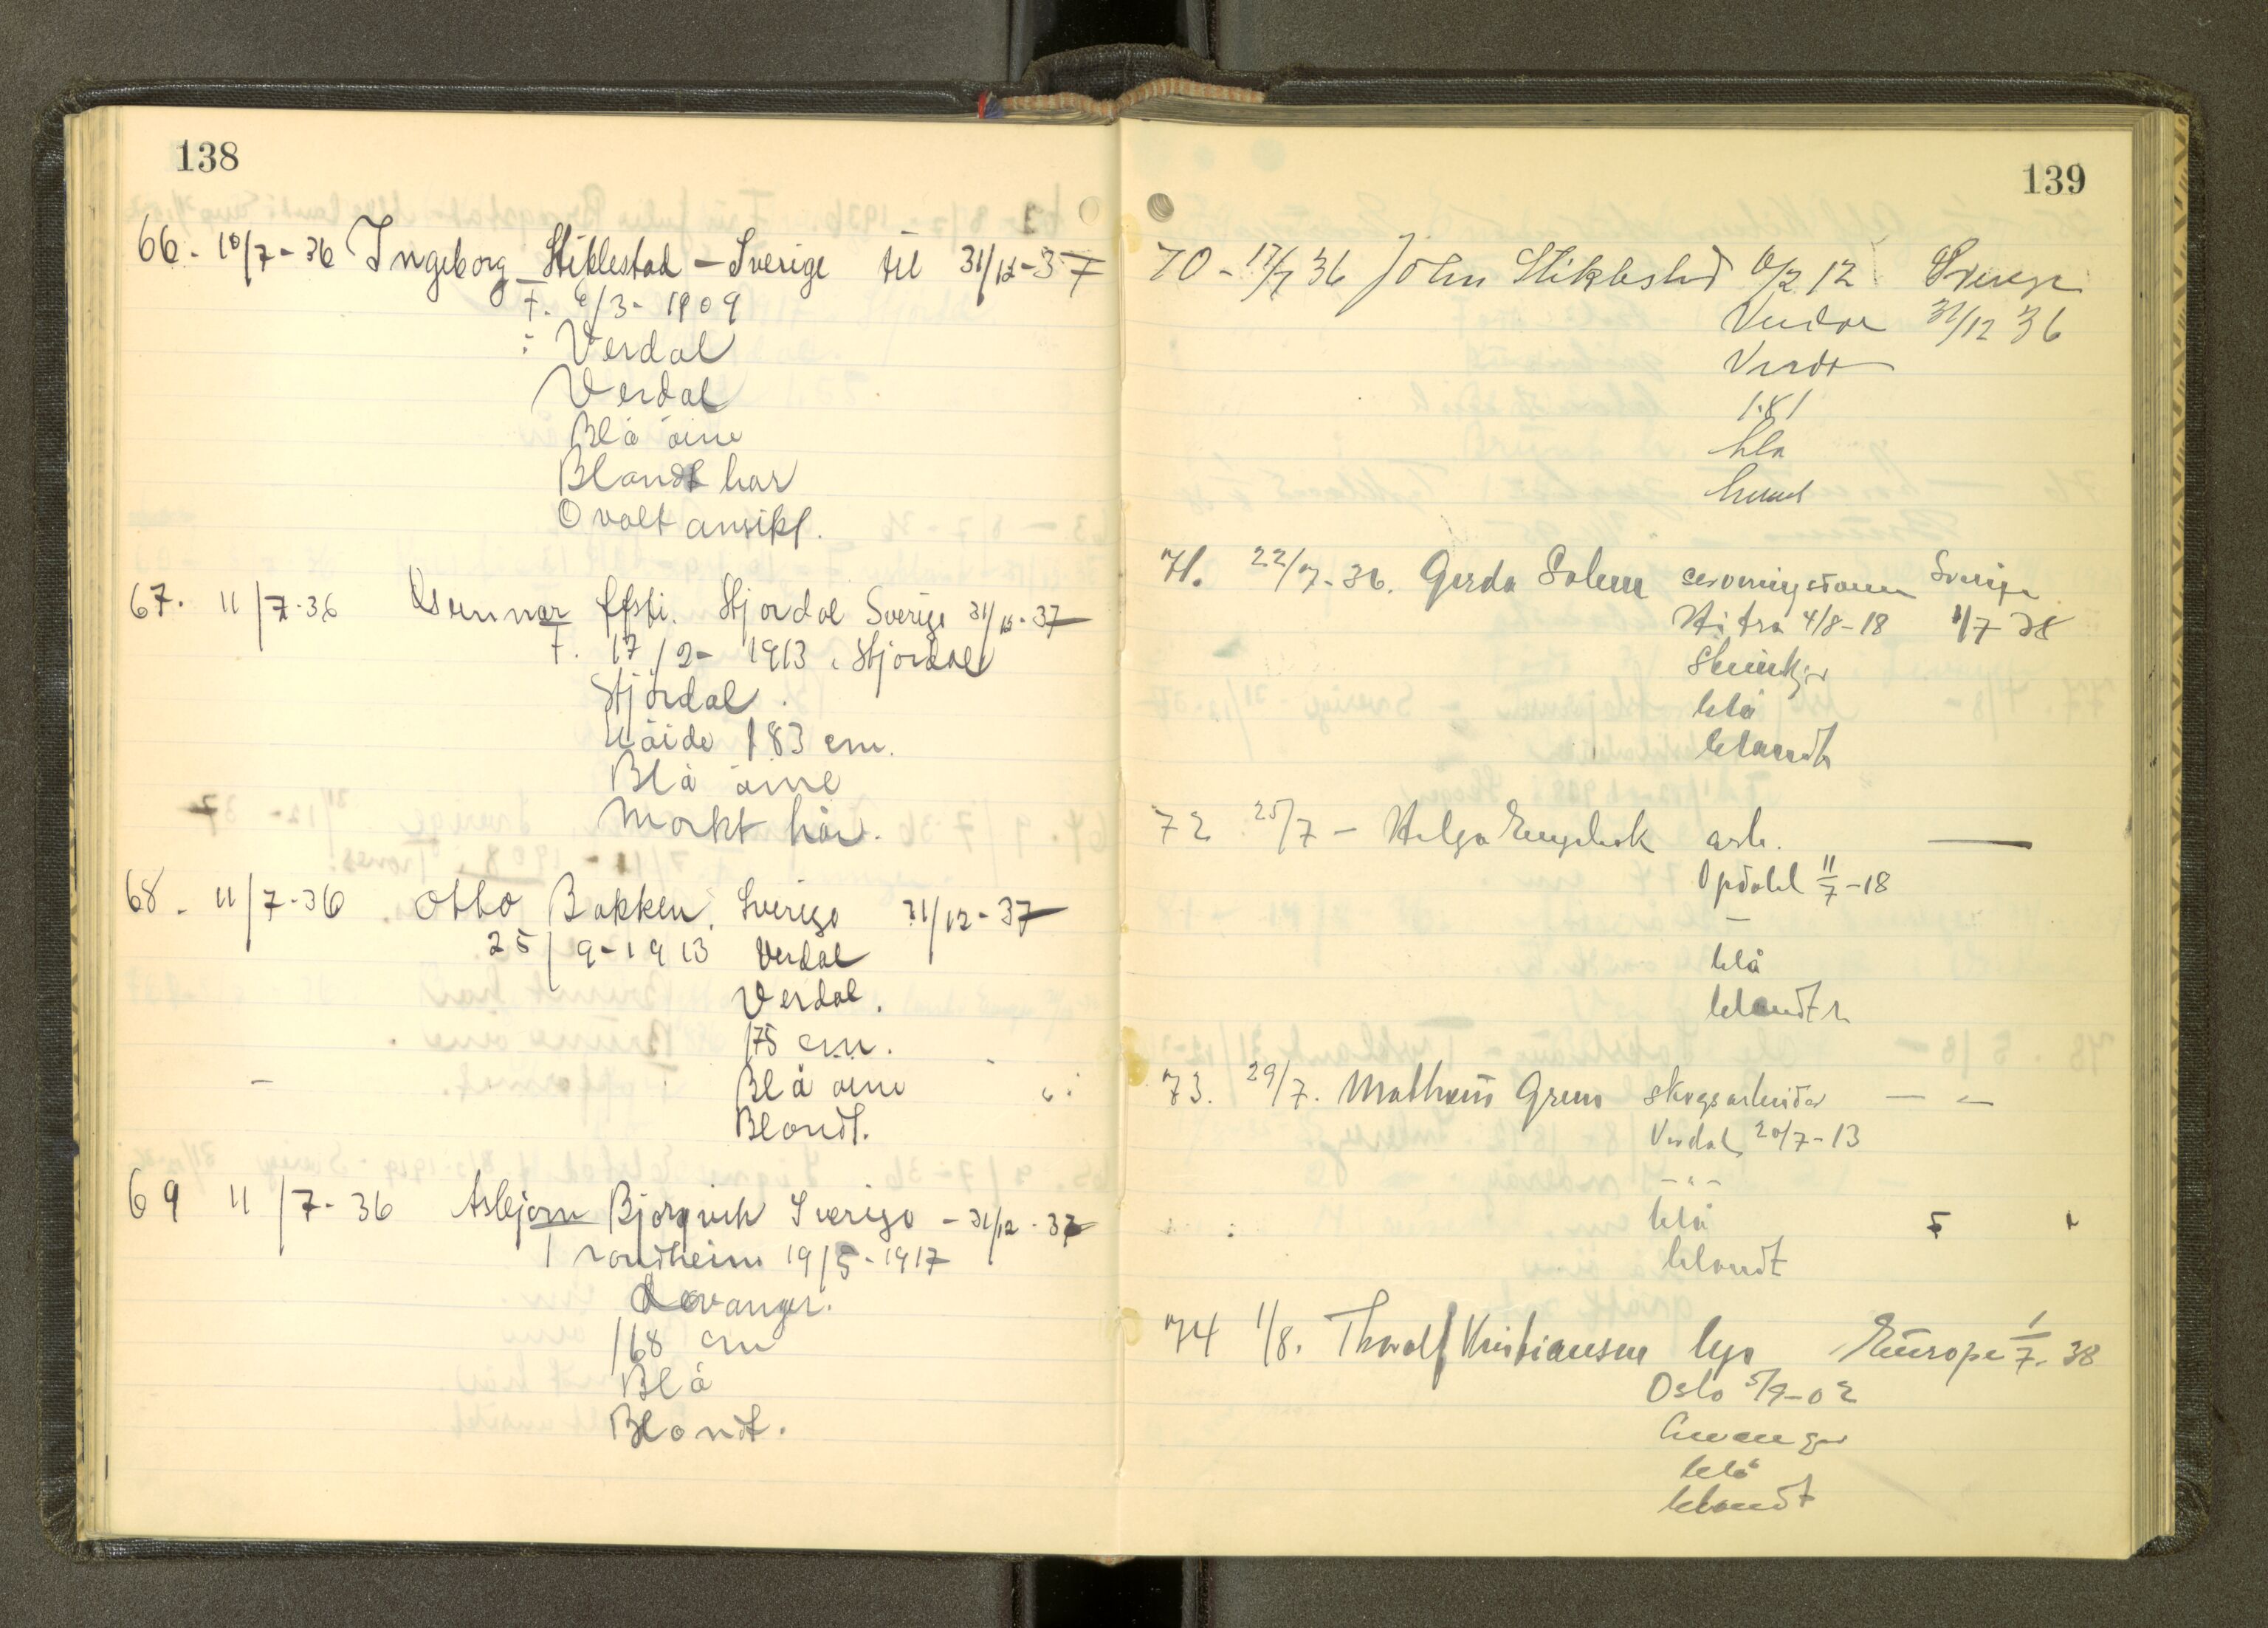 138
66. 10/7-36 Ingeborg Stiklestad - Sverige til 31/12-37
f. 6/3-1909
: Verdal
Verdal
Blå øine
Blondt hår
Ovalt ansikt.
67. 11/7-36 Gunnar Efsti. Stjørdal Sverige 31/12-37
f. 17/2-1913. Stjørdal
Stjørdal.
Høide 183 cm.
Blå øine
Mørkt hår.
68. 11/7-36 Otto Bakken. Sverige 31/12-37
25/9-1913 Verdal
Verdal.
175 cm.
Blå øine
Blondt.
69 11/7-36 Asbjørn Bjørgvik Sverige - 31/12-37
Trondheim 19/5-1917
Levanger.
168 cm
Blå
Blondt.
139
70 - 17/7 36 John Stiklestad 6/2 12 Sverige
Verdal 31/12 36
Verdal
1.81
blå
brunt
71. 22/7-36. Gerda Solem Sverige
Hitra 4/8-18 1/7 38
Steinkjer
blå
blondt
72 25/7 - Helga arb. —
Opdahl 11/7-18
-
blå
blondt
73. 29/7. Matheus skogsarbeider — -
Verdal 20/7-13
-"-
blå
blondt
74 1/8. Thoralf Kristiansen Europa 1/7-38
Oslo 5/9-02
Levanger
blå
blondt